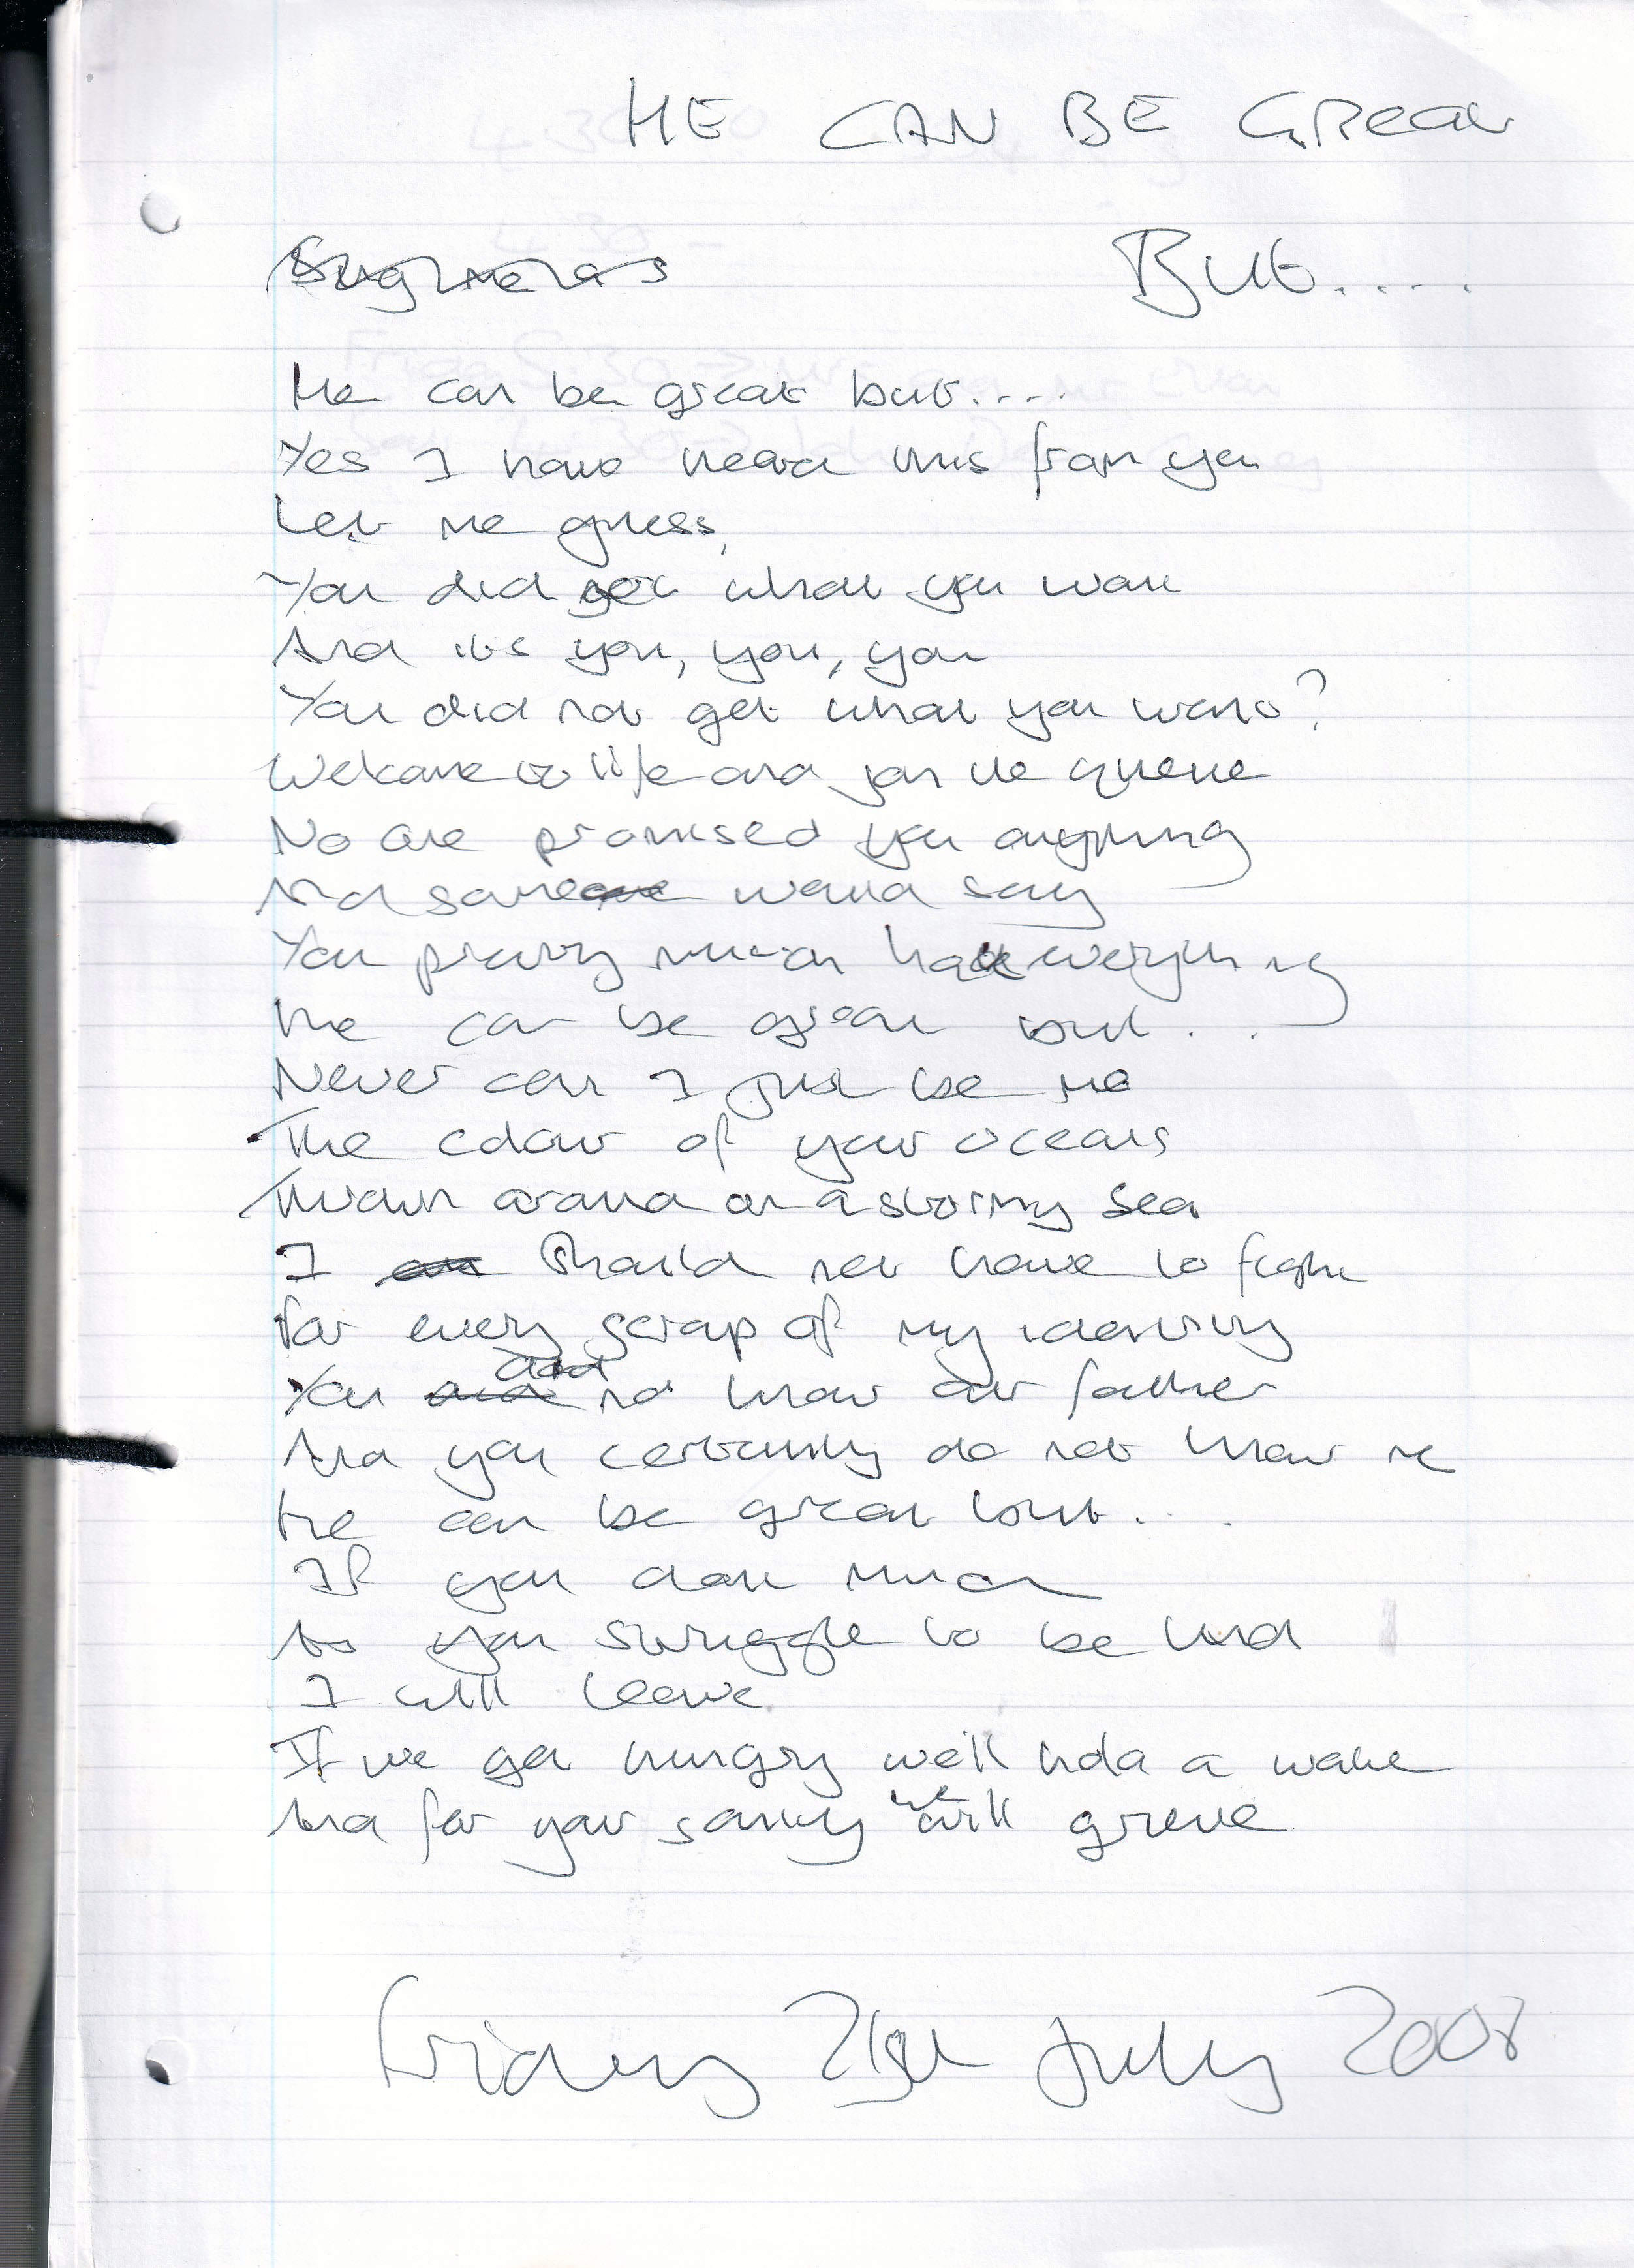 HE CAN BE GREAT
But.....
He can be great but....
Yes I have heard this from you
Let me guess,
You did not what you want
And its you, you, you
You did not get what you want?
Welcome to life and join the queue
No one promised you anything
And some would say
You pretty much have everything
He can be great but...
Never can I just be me
The colour of your oceans
Thrown around on a stormy sea
I should not have to fight
for every scrap of my identity
You did not know our father
And you certainly do not know me
He can be great but....
If you don't mind
As you struggle to be kind
I will leave
If we get hungry we'll hold a wake
And for your sanity we will grieve
Friday 21st July 2008